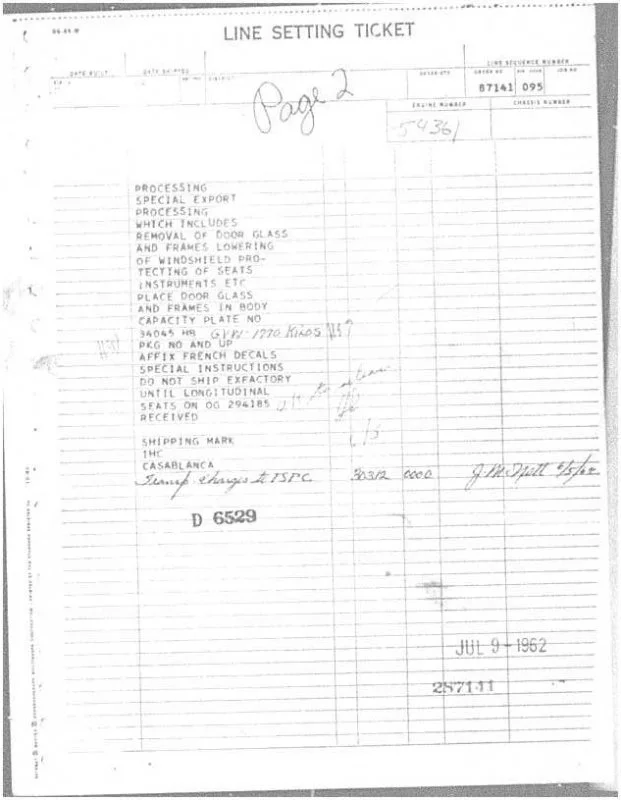 LINE SETTING TICKET
LINE SEQUENCE NUMBER
DATE BUILT
DATE SHIPPED
ORDER NO
JOB NO
87141 095
Page 2
ENGINE NUMBER
CHASSIS NUMBER
54361
PROCESSING
SPECIAL EXPORT
PROCESSING
WHICH INCLUDES
REMOVAL OF DOOR GLASS
AND FRAMES LOWERING
OF WINDSHIELD PRO-
TECTING OF SEATS
INSTRUMENTS ETC
PLACE DOOR GLASS
AND FRAMES IN BODY
CAPACITY PLATE NO
34045 HB GVW-1770 KILOS
PKG NO AND UP
AFFIX FRENCH DECALS
SPECIAL INSTRUCTIONS
DO NOT SHIP EXFACTORY
UNTIL LONGITUDINAL
SEATS ON OG 294185
RECEIVED
SHIPPING MARK
IHC
CASABLANCA
Transp. Charges to 30312 0000
D 6529
JUL 9 - 1962
287141